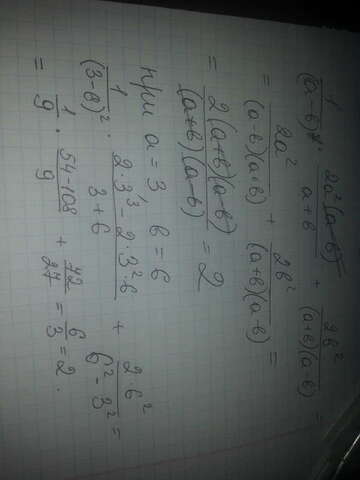 1/(a-b)² · 2a²(a-b)/(a+b) + 2b²/((a+b)(a-b)) =
= 2a²/((a-b)(a+b)) + 2b²/((a+b)(a-b)) =
= 2(a+b)(a-b)/((a+b)(a-b)) = 2
при a=3 b=6
1/(3-6)² · (2·3³-2·3²·6)/(3+6) + 2·6²/(6²-3²) =
= 1/9 · (54-108)/9 + 72/27 = 6/3 = 2.